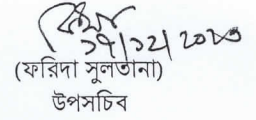 ২৭/১২/২০২৩
(ফরিদা সুলতানা)
উপসচিব